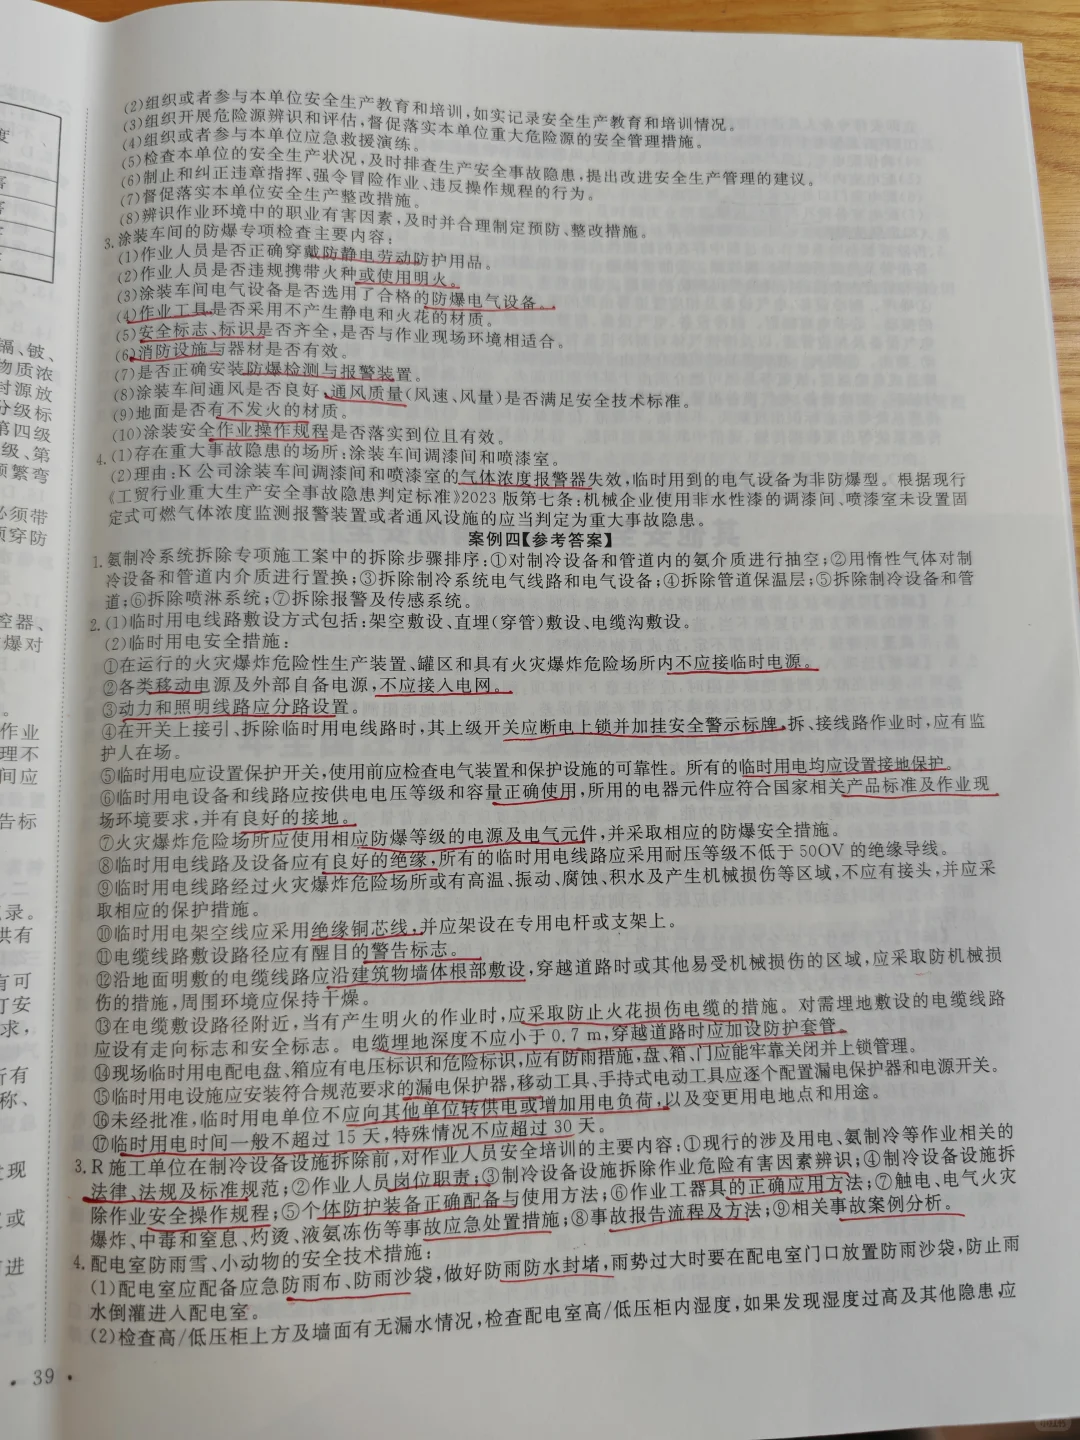 度
、
害
害
镉、铍、
物质浓
封源放
分级标
第四级
级、第
频繁弯
必须带
须穿防
控器、
爆对
。
作业
理不
间应
告标
录。
供有
有可
订安
求，
所有
称、
发现
或
进
· 39 ·
(2)组织或者参与本单位安全生产教育和培训，如实记录安全生产教育和培训情况。
(3)组织开展危险源辨识和评估，督促落实本单位重大危险源的安全管理措施。
(4)组织或者参与本单位应急救援演练。
(5)检查本单位的安全生产状况，及时排查生产安全事故隐患，提出改进安全生产管理的建议。
(6)制止和纠正违章指挥、强令冒险作业、违反操作规程的行为。
(7)督促落实本单位安全生产整改措施。
(8)辨识作业环境中的职业有害因素，及时并合理制定预防、整改措施。
3.涂装车间的防爆专项检查主要内容：
(1)作业人员是否正确穿戴防静电劳动防护用品。
(2)作业人员是否违规携带火种或使用明火。
(3)涂装车间电气设备是否选用了合格的防爆电气设备。
(4)作业工具是否采用不产生静电和火花的材质。
(5)安全标志、标识是否齐全，是否与作业现场环境相适合。
(6)消防设施与器材是否有效。
(7)是否正确安装防爆检测与报警装置。
(8)涂装车间通风是否良好、通风质量(风速、风量)是否满足安全技术标准。
(9)地面是否有不发火的材质。
(10)涂装安全作业操作规程是否落实到位且有效。
4.(1)存在重大事故隐患的场所：涂装车间调漆间和喷漆室。
(2)理由：K公司涂装车间调漆间和喷漆室的气体浓度报警器失效，临时用到的电气设备为非防爆型。根据现行
《工贸行业重大生产安全事故隐患判定标准》2023版第七条：机械企业使用非水性漆的调漆间、喷漆室未设置固
定式可燃气体浓度监测报警装置或者通风设施的应当判定为重大事故隐患。
案例四【参考答案】
1.氨制冷系统拆除专项施工案中的拆除步骤排序：①对制冷设备和管道内的氨介质进行抽空；②用惰性气体对制
冷设备和管道内介质进行置换；③拆除制冷系统电气线路和电气设备；④拆除管道保温层；⑤拆除制冷设备和管
道；⑥拆除喷淋系统；⑦拆除报警及传感系统。
2.(1)临时用电线路敷设方式包括：架空敷设、直埋(穿管)敷设、电缆沟敷设。
(2)临时用电安全措施：
①在运行的火灾爆炸危险性生产装置、罐区和具有火灾爆炸危险场所内不应接临时电源。
②各类移动电源及外部自备电源，不应接入电网。
③动力和照明线路应分路设置。
④在开关上接引、拆除临时用电线路时，其上级开关应断电上锁并加挂安全警示标牌，拆、接线路作业时，应有监
护人在场。
⑤临时用电应设置保护开关，使用前应检查电气装置和保护设施的可靠性。所有的临时用电均应设置接地保护。
⑥临时用电设备和线路应按供电电压等级和容量正确使用，所用的电器元件应符合国家相关产品标准及作业现
场环境要求，并有良好的接地。
⑦火灾爆炸危险场所应使用相应防爆等级的电源及电气元件，并采取相应的防爆安全措施。
⑧临时用电线路及设备应有良好的绝缘，所有的临时用电线路应采用耐压等级不低于50OV的绝缘导线。
⑨临时用电线路经过火灾爆炸危险场所或有高温、振动、腐蚀、积水及产生机械损伤等区域，不应有接头，并应采
取相应的保护措施。
⑩临时用电架空线应采用绝缘铜芯线，并应架设在专用电杆或支架上。
⑪电缆线路敷设路径应有醒目的警告标志。
⑫沿地面明敷的电缆线路应沿建筑物墙体根部敷设，穿越道路时或其他易受机械损伤的区域，应采取防机械损
伤的措施，周围环境应保持干燥。
⑬在电缆敷设路径附近，当有产生明火的作业时，应采取防止火花损伤电缆的措施。对需埋地敷设的电缆线路
应设有走向标志和安全标志。电缆埋地深度不应小于0.7 m，穿越道路时应加设防护套管。
⑭现场临时用电配电盘、箱应有电压标识和危险标识，应有防雨措施，盘、箱、门应能牢靠关闭并上锁管理。
⑮临时用电设施应安装符合规范要求的漏电保护器，移动工具、手持式电动工具应逐个配置漏电保护器和电源开关。
⑯未经批准，临时用电单位不应向其他单位转供电或增加用电负荷，以及变更用电地点和用途。
⑰临时用电时间一般不超过15天，特殊情况不应超过30天。
3.R施工单位在制冷设备设施拆除前，对作业人员安全培训的主要内容：①现行的涉及用电、氨制冷等作业相关的
法律、法规及标准规范；②作业人员岗位职责；③制冷设备设施拆除作业危险有害因素辨识；④制冷设备设施拆
除作业安全操作规程；⑤个体防护装备正确配备与使用方法；⑥作业工器具的正确应用方法；⑦触电、电气火灾
爆炸、中毒和窒息、灼烫、液氨冻伤等事故应急处置措施；⑧事故报告流程及方法；⑨相关事故案例分析。
4.配电室防雨雪、小动物的安全技术措施：
(1)配电室应配备应急防雨布、防雨沙袋，做好防雨防水封堵，雨势过大时要在配电室门口放置防雨沙袋，防止雨
水倒灌进入配电室。
(2)检查高/低压柜上方及墙面有无漏水情况，检查配电室高/低压柜内湿度，如果发现湿度过高及其他隐患，应